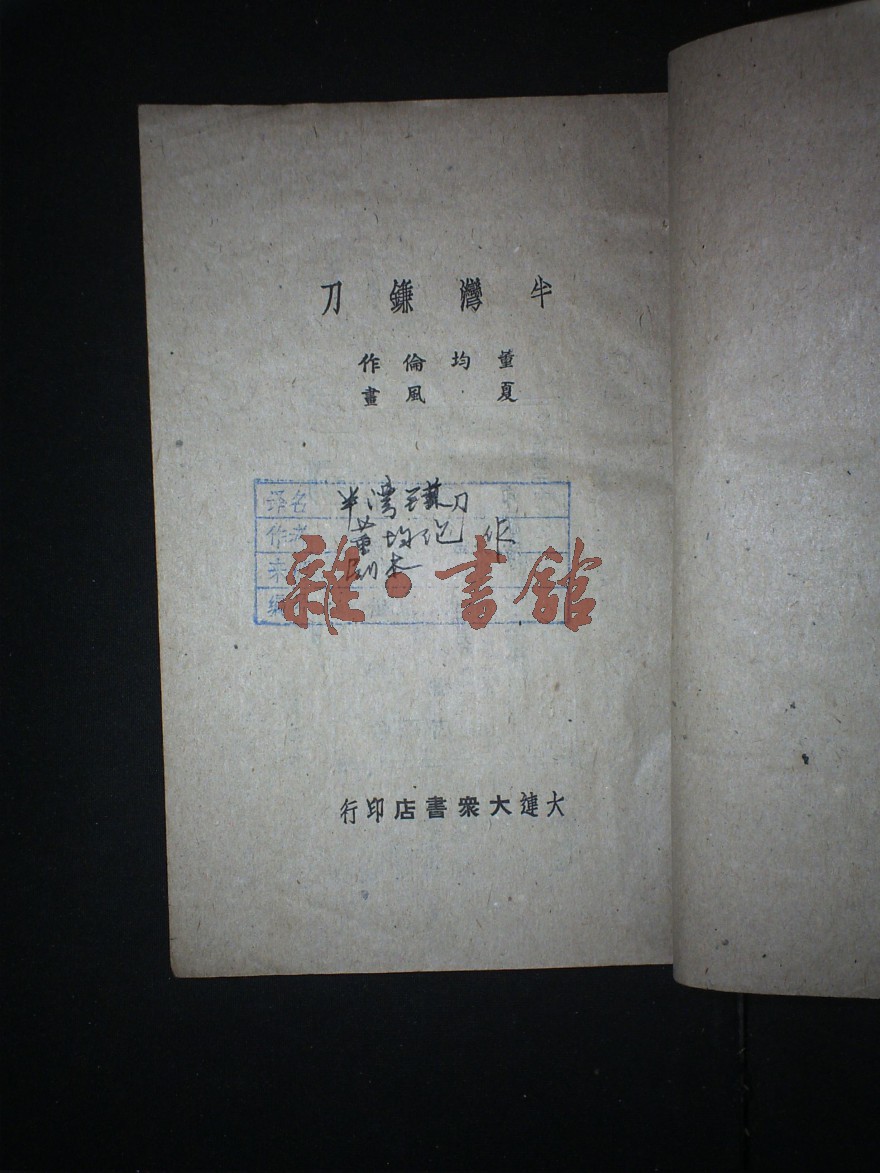 半灣鎌刀
董均倫作
夏風畫
译名 半灣鐮刀
作者 董均伦 作
剧本
雜·書館
大連大衆書店印行